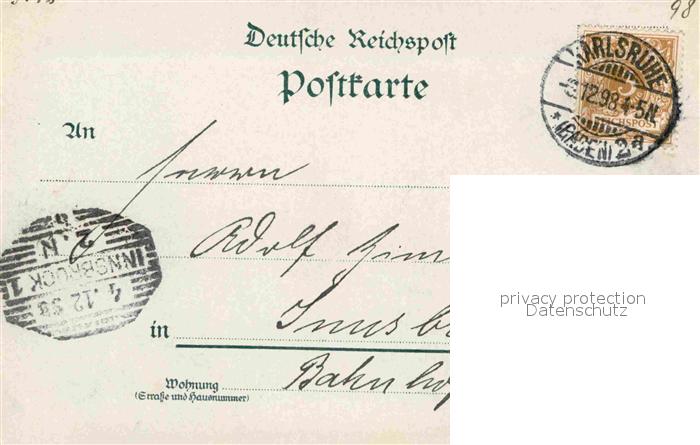 98
Deutsche Reichspost
Postkarte
KARLSRUHE
12.98.4-5N.
REICHSPOST
* (BADEN) 2a
An
Herrn
Adolf
2.N
INNSBRUCK 1
4.12.98
in
Bahnhof
Wohnung
(Straße und Hausnummer)
privacy protection
Datenschutz